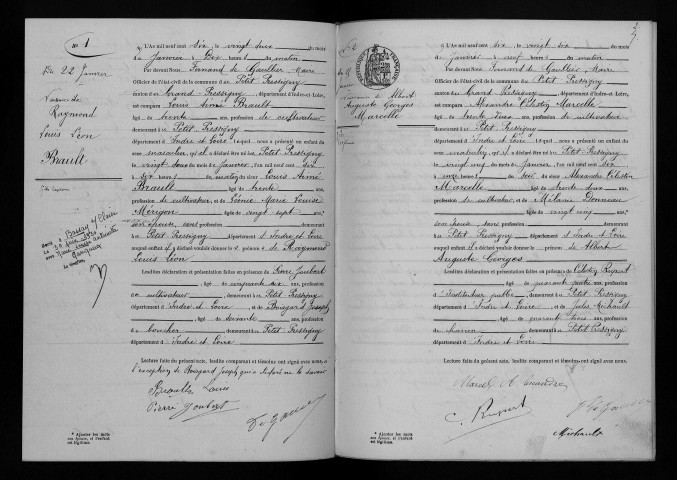 N° 1
Du 22 Janvier
Naissance de
Raymond
Louis Léon
Brault
L'An mil neuf cent six, le vingt deux du mois
de Janvier à Dix heures du matin
Par devant Nous, Fernand de Gaultier Maire
Officier de l'état-civil de la commune d Petit Pressigny
canton d Grand Pressigny, département d'Indre-et-Loire,
est comparu Louis Aimé Brault
âgé de trente ans, profession de cultivateur
demeurant à Petit Pressigny
département d'Indre et Loire lequel nous a présenté un enfant du
sexe masculin, qu'il a déclaré être né à Petit Pressigny
le vingt deux du mois de Janvier, l'an mil neuf cent six
à six heures du matin, de Louis Aimé
Brault âgé de trente ans,
profession de cultivateur, et de Léonie Marie Louise
Mérigon âgée de vingt sept ans,
son épouse, sans profession
Petit Pressigny département d'Indre et Loire
auquel enfant il a déclaré vouloir donner les prénoms de Raymond
Louis Léon
Lesdites déclaration et présentation faites en présence de Pierre Joubert
âgé de cinquante six ans, profession
de cultivateur demeurant à Petit Pressigny
département d'Indre et Loire et de Boisgard Joseph
âgé de soixante ans, profession
de boucher demeurant à Petit Pressigny
département d'Indre et Loire
Lecture faite du présent acte, lesdits comparant et témoins ont signé avec nous, à
l'exception de Boisgard Joseph qui a déclaré ne le savoir
Brault Louis
Pierre Joubert
* Ajouter les mots
son épouse, si l'enfant
est légitime.
N° 2
Naissance de Albert
Auguste Georges
Marcelle
RÉPUBLIQUE FRANÇAISE
L'An mil neuf cent six, le vingt six du mois
de Janvier à neuf heures du matin
Par devant Nous, Fernand de Gaultier Maire
Officier de l'état-civil de la commune d Petit Pressigny
canton d Grand Pressigny, département d'Indre-et-Loire,
est comparu Alexandre Célestin Marcelle
âgé de trente deux ans, profession de cultivateur
demeurant à Petit Pressigny
département d'Indre et Loire lequel nous a présenté un enfant du
sexe masculin, qu'il a déclaré être né à Petit Pressigny
le vingt cinq du mois de Janvier, l'an mil neuf cent six
à onze heures du soir, de Alexandre Célestin
Marcelle âgé de trente deux ans,
profession de cultivateur, et de Mélanie Bonneau
âgée de vingt cinq ans,
Petit Pressigny département d'Indre et Loire
auquel enfant il a déclaré vouloir donner les prénoms de Albert
Auguste Georges
Lesdites déclaration et présentation faites en présence de Célestin Rupert
âgé de quarante quatre ans, profession
d'Instituteur public demeurant à Petit Pressigny
département d'Indre et Loire et de Jules Michault
âgé de quarante trois ans, profession
de charron demeurant à Petit Pressigny
département d'Indre et Loire
Lecture faite du présent acte, lesdits comparant et témoins ont signé avec nous.
C. Rupert
Michault
* Ajouter les mots
son épouse, si l'enfant
est légitime.